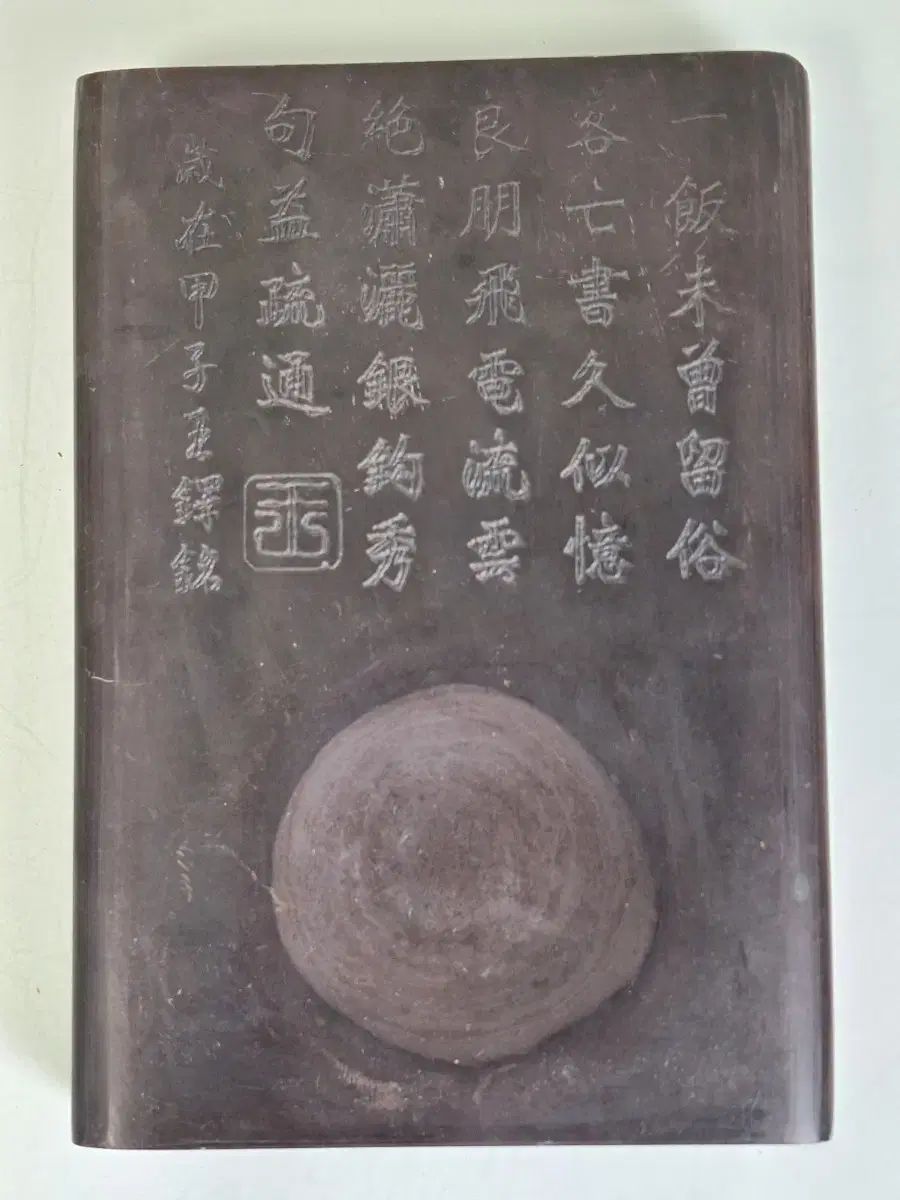 一飯未曾留俗
客亡書久似憶
良朋飛電流雲
絶瀟灑銀鈎秀
句益疏通
歲在甲子王鐸銘